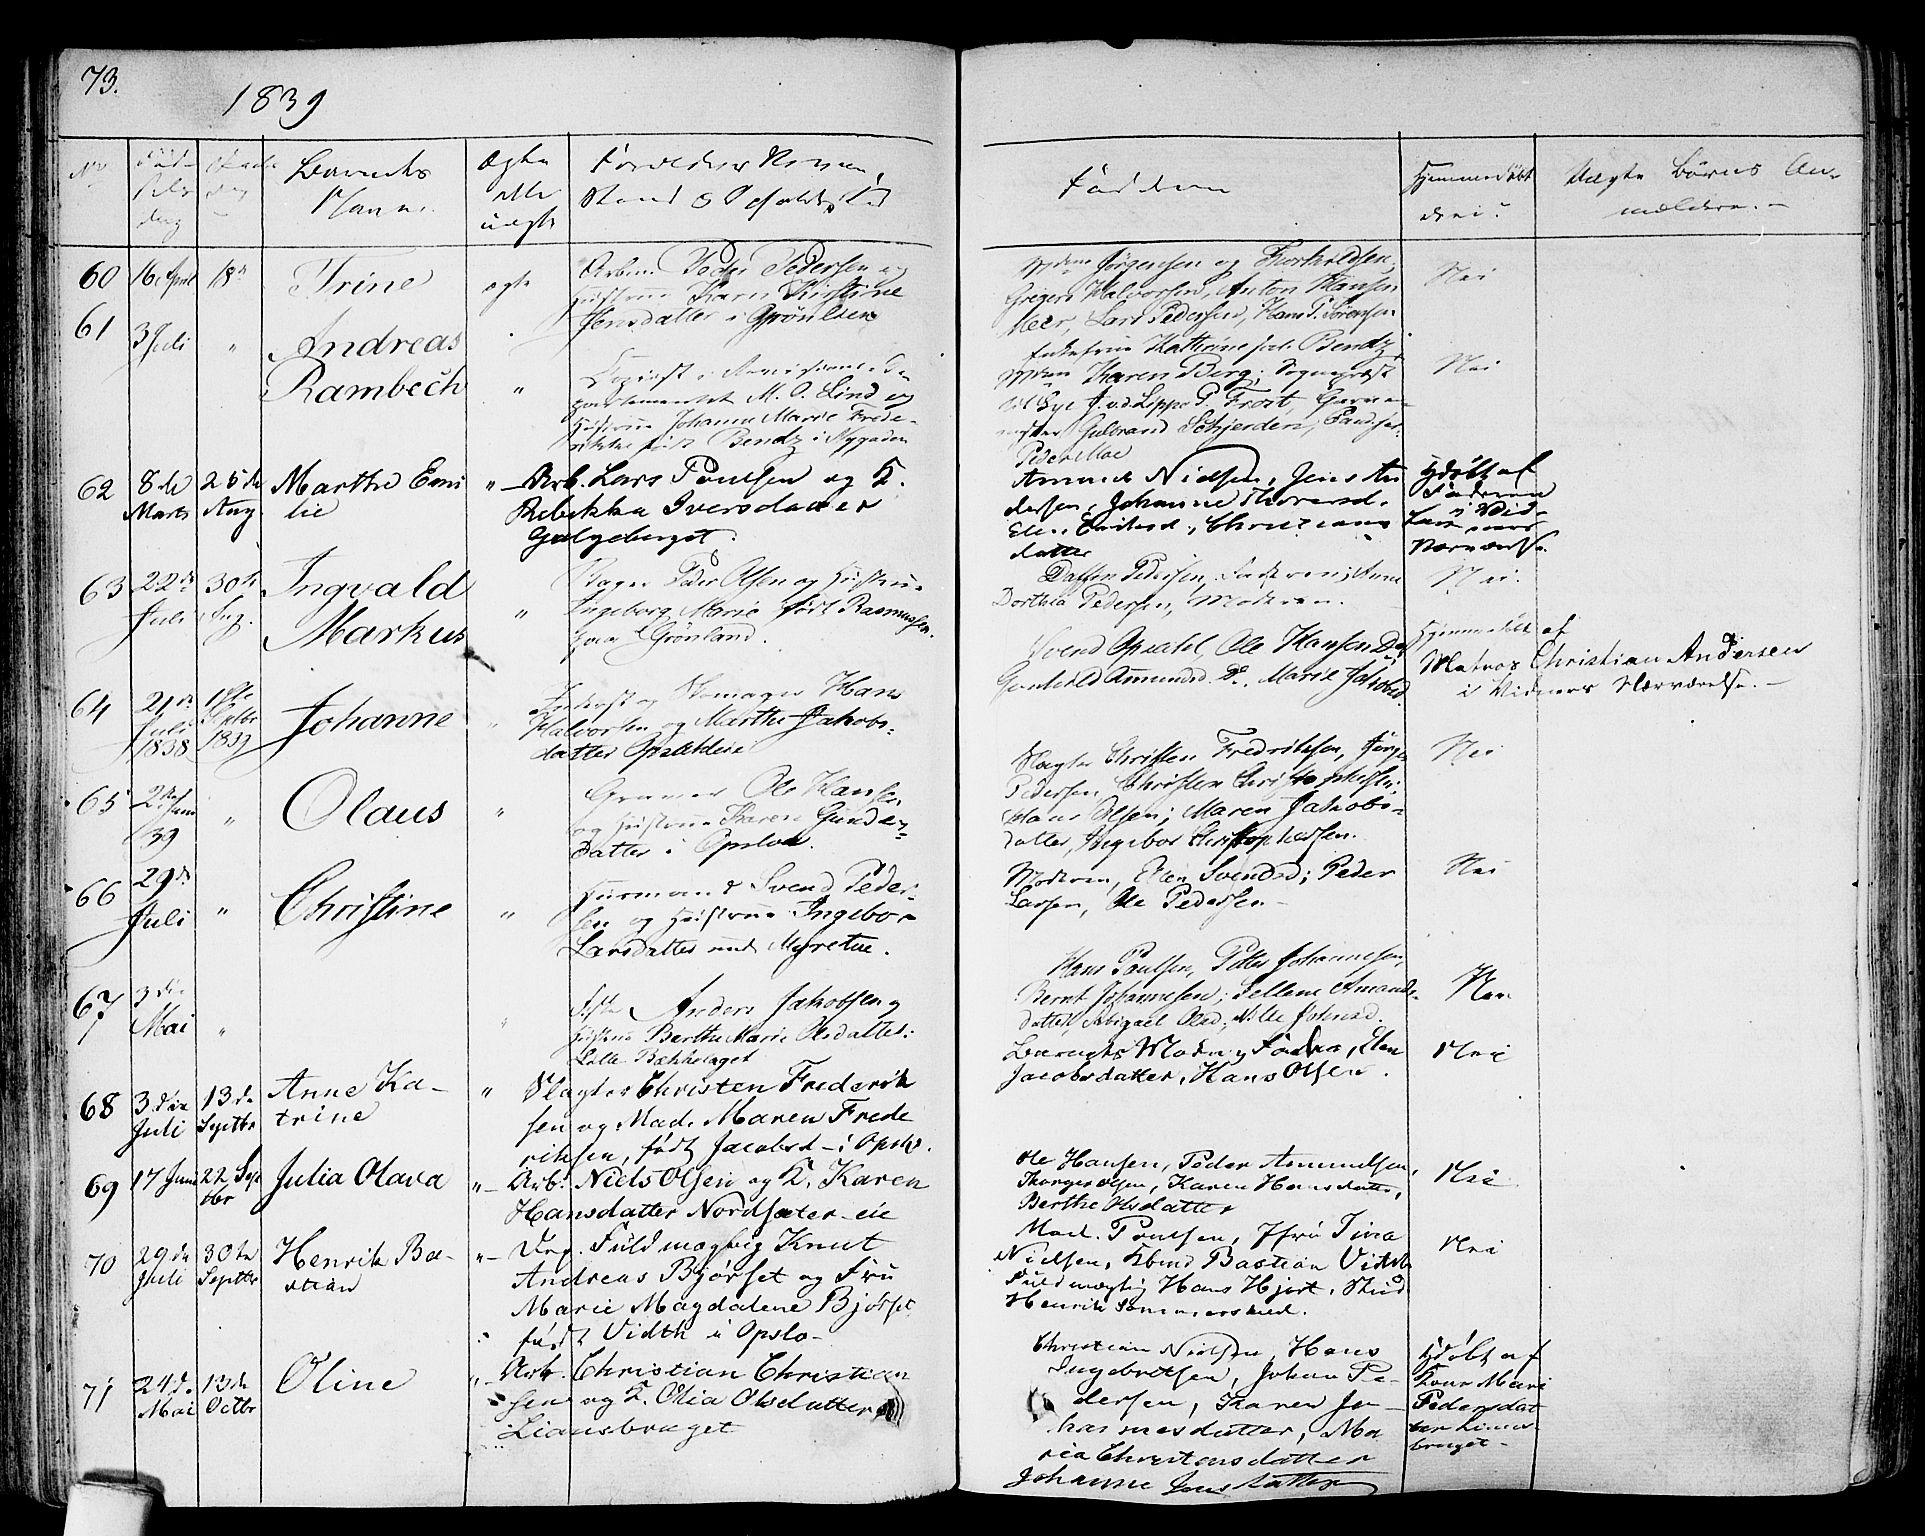 73.
1839
No
Fød-
sels
dag
Daabs
dag
Barnets
Navn.
Ægte
eller
uægte
Forældres Navn,
Stand & Opholdssted
Faddere
Hjemmedøbt
eller ei?
Uægte Børns An-
mældere.
60 16 April 18de Trine ægte
Arbm. Peder Pedersen og
Hustrue Karen Kirstine
Jensdatter i Grönlien
Jörgensen og Thorkeldsen,
Grigers Halvorsen, Anton Hansen
Meer, Lars Pedersen, Hans P. Sörensen
Nei
61 3 Juli " Andreas
Rambech "
Departementet M. O. Lind og
Hustrue Johanne Marie Frede-
rikke født Bendz i Nygaden
Kathrine Bendz,
Karen Berg; Sogneprest
J. v. d. Lippe P. Frost, Garver-
mester Gulbrand Schjerden,
Peder Moe
Nei
62 8de
Marts
25de
Aug.
Marthe Emi
lie
" Arb. Lars Poulsen og K.
Rebekka Iversdatter
Galgeberget.
Amund Nielsen, Jens An
dersen, Johanne Thorersd.
Christians
datter
Hjdøbt af
Faderen
i Vid-
ners
Nærværelse.
63 22de
Juli
30te
Aug.
Ingvald
Markus
"
Peder Olsen og Hustrue
Ingeborg Marie født Rasmussen
paa Grønland.
Pedersen, Faderen; Anne
Dorthea Pedersen, Moderen.
Nei.
64 21de
Juli
1838
1ste
Septbr
1839
Johanne "
Inderst og Skomager Hans
Halvorsen og Marthe Jakobs-
datter Opsaldeie
Svend Opsald Ole Hansen Do,
Gunhild Amundsd. Do, Marie Jakobsd.
Hjemmedøbt af
Matros Christian Andersen
i Vidners Nærværelse.
65 2den
Juni
39
" Olaus "
Graver Ole Hansen
og Hustrue Karen Gunder-
datter i Opslo.
Slagter Christen Fredriksen, Jörgen
Pedersen, Christen Christophersen;
Hans Olsen; Maren Jakobs-
datter, Ingebor Christophersen.
Nei
66 29de
Juli
" Christine "
Huusmand Svend Peder-
sen og Hustrue Ingebor
Larsdatter under Myretue.
Moderen, Elen Svendsd; Peder
Larsen, Ole Pedersen
Nei
67 3die
Mai
" "
Anders Jakobsen og
Hustrue Berthe Marie Olsdatter:
Lille Bækkelaget
Hans Poulsen, Peter Johannesen,
Bernt Johannesen; Amunds-
datter, Abigael Olsd;
Nei
68 3die
Juli
13de
Septbr
Anne Ka-
trine
" Slagter Christen Frederik
sen og Mad. Maren Frede
riksen, født Jacobsd - i Opslo.
Barnets Moder og Fader, Elen
Jacobsdatter, Hans Olsen.
Nei
69 17 Juni 22 Sept
br
Julia Olava
" Arb. Niels Olsen og K. Karen
Hansdatter Nordsæter-eie
Ole Hansen, Peder Amundsen,
Thorger Olsen, Karen Hansdatter,
Berthe Olsdatter
Nei
70 29de
Juli
30te
Septbr
Henrik Ba-
stian
" Fuldmægtig Knut
Andreas Bjørset og Fru
Marie Magdalene Bjørset
født Vidth i Opslo-
Mad. Poulsen, Jfru Tina
Nielsen, Bastian Vidth
Fuldmægtig Hans Hjort, Stud
Henrik Sommerskield.
Nei
71 24de
Mai
13de
Octbr
Oline
" Arb. Christian Christian
sen og K. Olia Olsdatter
Liansbraget
Christian Nielsen, Hans
Ingebretsen, Johan Pe-
dersen, Karen Jo-
hannesdatter, Ma-
ria Christensdatter
Johanne Jensdatter
Hjdøbt af
Kone Mari
Pedersdat
ter Lians-
braget-